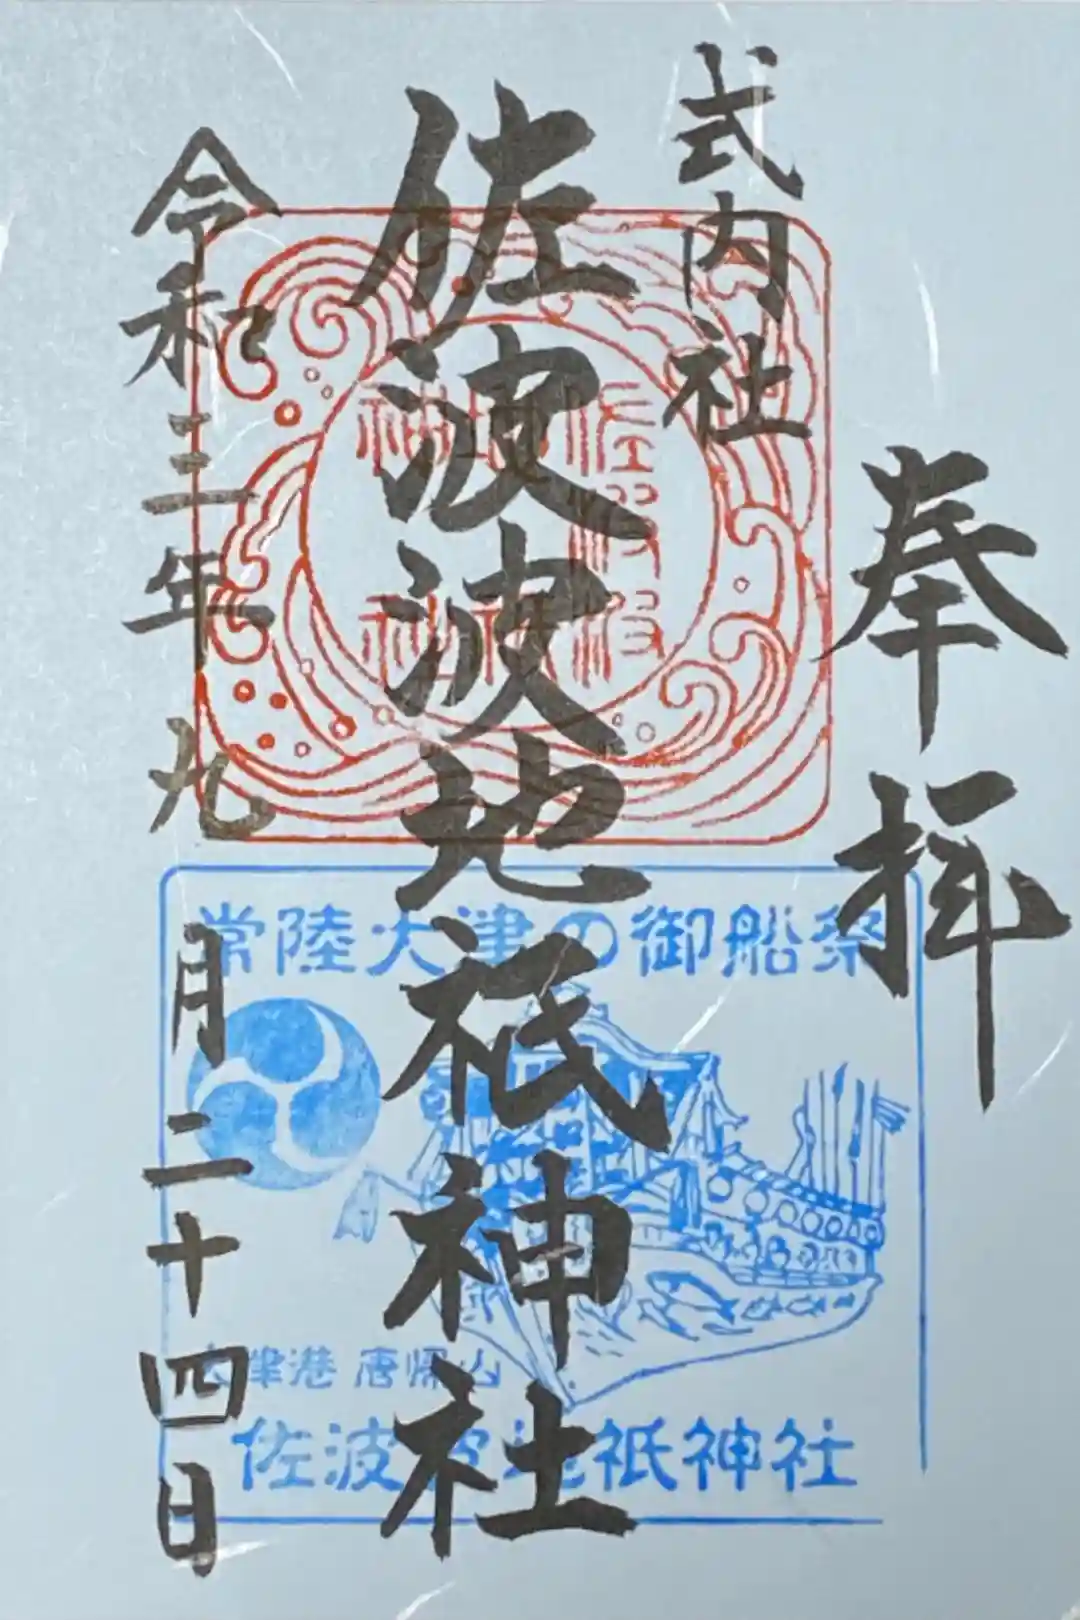 奉拝
式内社
佐波波地祇神社
令和三年九月二十四日
常陸大津の御船祭
大津港 唐帰山
佐波波地祇神社